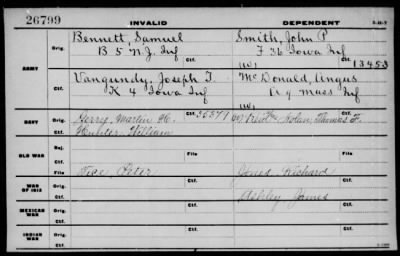 26799 INVALID DEPENDENT 3-18-7
ARMY
Orig. Bennett, Samuel Smith, John P
B 5 N.J. Inf F 36 Iowa Inf
Ctf. W, Ctf. 13453
Orig. Vangundy, Joseph T. McDonald, Angus
K 4 Iowa Inf A 9 Mass Inf
Ctf. W, Ctf.
NAVY
Orig. Gerry, Martin H. Nolan, Thomas F.
Ctf. Hunter William Ctf.
OLD WAR
Rej. Ctf.
File File
WAR OF 1812
Orig. Fox Peter Jones Richard
Ctf. Ashley James
MEXICAN WAR
Orig.
Ctf. Ctf.
INDIAN WAR
Orig.
Ctf. Ctf.